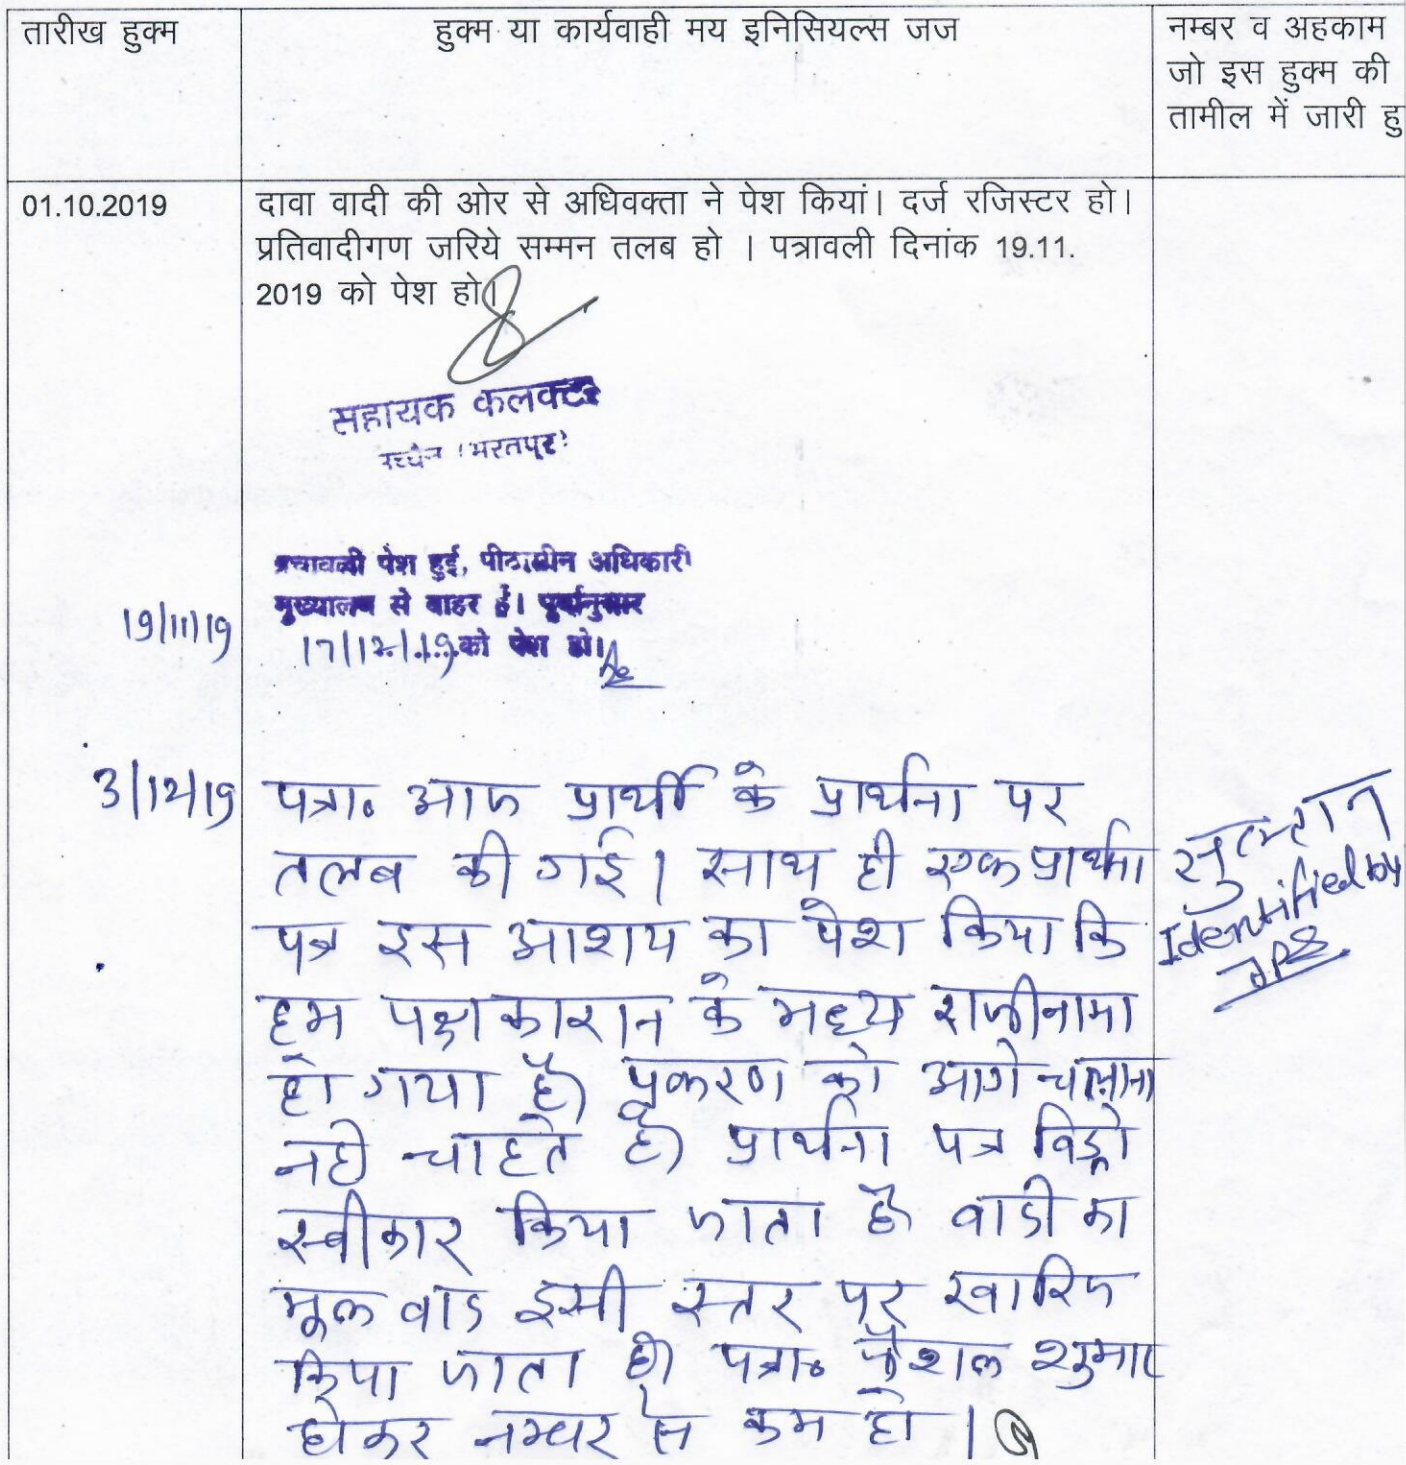 तारीख हुक्म
हुक्म या कार्यवाही मय इनिसियल्स जज
नम्बर व अहकाम
जो इस हुक्म की
तामील में जारी हु
01.10.2019
दावा वादी की ओर से अधिवक्ता ने पेश कियां। दर्ज रजिस्टर हो।
प्रतिवादीगण जरिये सम्मन तलब हो । पत्रावली दिनांक 19.11.
2019 को पेश हो।
सहायक कलक्टर
उच्चैन (भरतपुर)
पत्रावली पेश हुई, पीठासीन अधिकारी
मुख्यालय से बाहर हैं। पूर्वानुसार
19/11/19
17/12/19 को पेश हो।
3/12/19
पत्रा० आज प्रार्थी के प्रार्थना पर
तलब की गई। साथ ही एक प्रार्थना
पत्र इस आशय का पेश किया कि
हम पक्षकारान के मध्य राजीनामा
हो गया है) प्रकरण को आगे चलाना
नही चाहते है) प्रार्थना पत्र विड्रो
स्वीकार किया जाता है वादी का
मूल वाद इसी स्तर पर खारिज
किया जाता है) पत्रा० फैशल शुमार
होकर नम्वर से कम हो ।
सुल्तान
Identified by